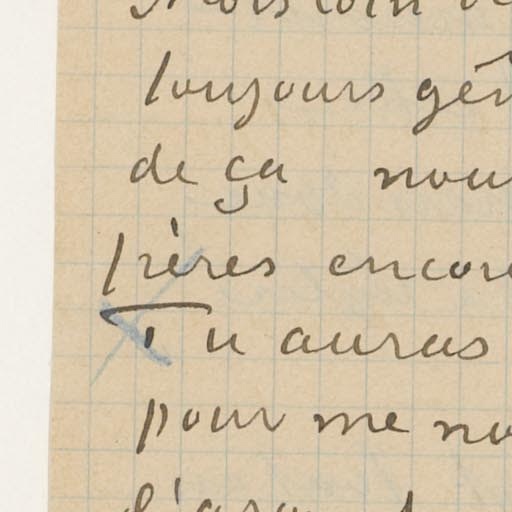 toujours gên
de ça nou
frères encore
Tu auras
pour me no